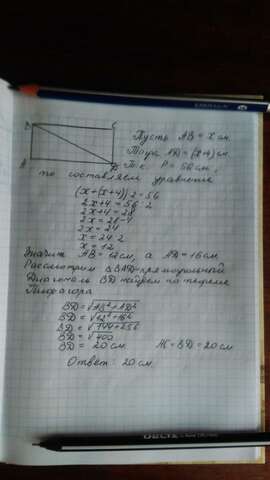 B
C
A
D
Пусть AB = x см.
Тогда AD = (x+4) см
Т.к. P = 56 см,
то составляем уравнение
(x+(x+4))·2=56
2x+4=56:2
2x+4=28
2x=28-4
2x=24
x=24:2
x=12
Значит AB=12см, а AD=16см
Рассмотрим △BAD-прямоугольный
Диагональ BD найдем по теореме
Пифагора
BD=√AB²+AD²
BD=√12²+16²
BD=√144+256
BD=√400
BD=20см AC=BD=20см
Ответ: 20см.
DELTA